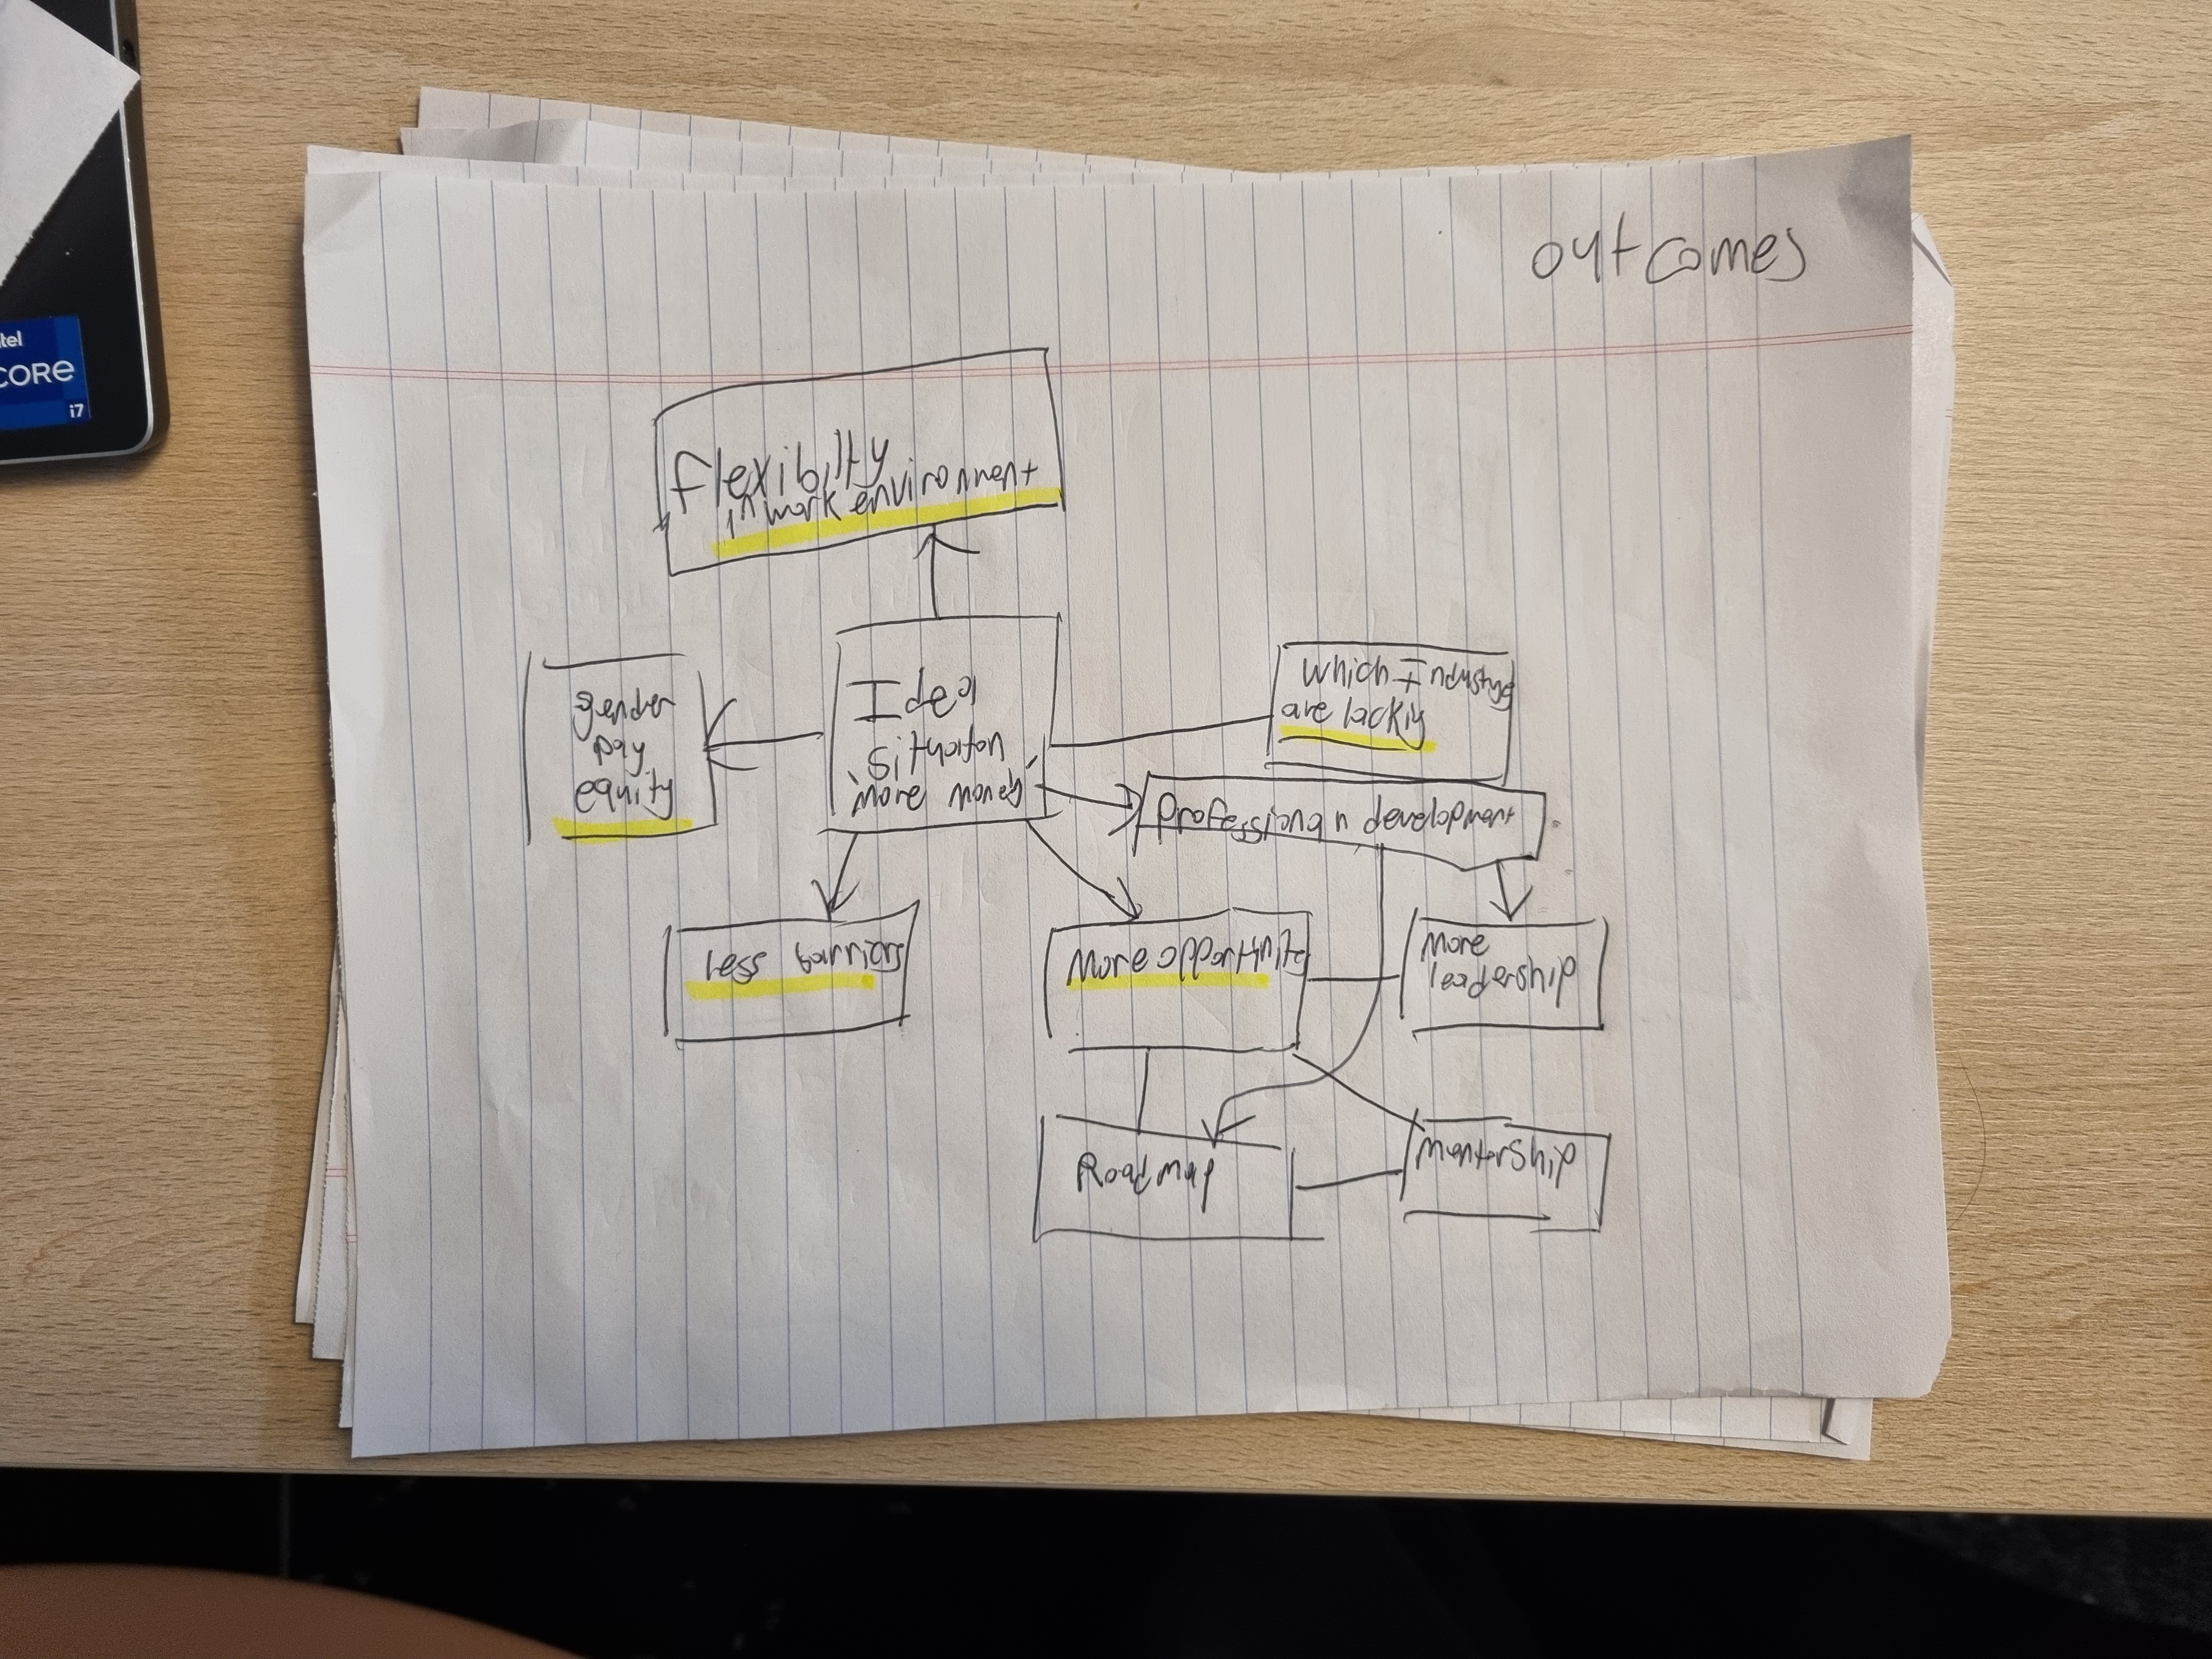 outcomes
flexibilty
in work environment
gender
pay
equity
Ideal
situation
'more money'
which Industry
are lackig
professiona n development
Less barriers
More opportunite
more
leadership
Roadmap
mentorship
ntel
CORE
i7